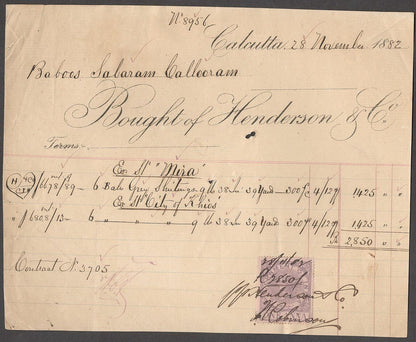 No 8956
Calcutta, 28 November 1882
Baboos Salaram Callooram
Bought of Henderson & Co
Terms
Ex St "Mira"
6 Bales Grey Shirtings 9 lb 38 In 39 Yard 300 ps 4/12 1425 " "
Ex St "City of Khios"
6 " " " 9 lb 38 In 39 Yard 300 ps 4/12 1425 " "
2,850 " "
Contract No 3705
28/11/82
R 2850/
pp Henderson & Co